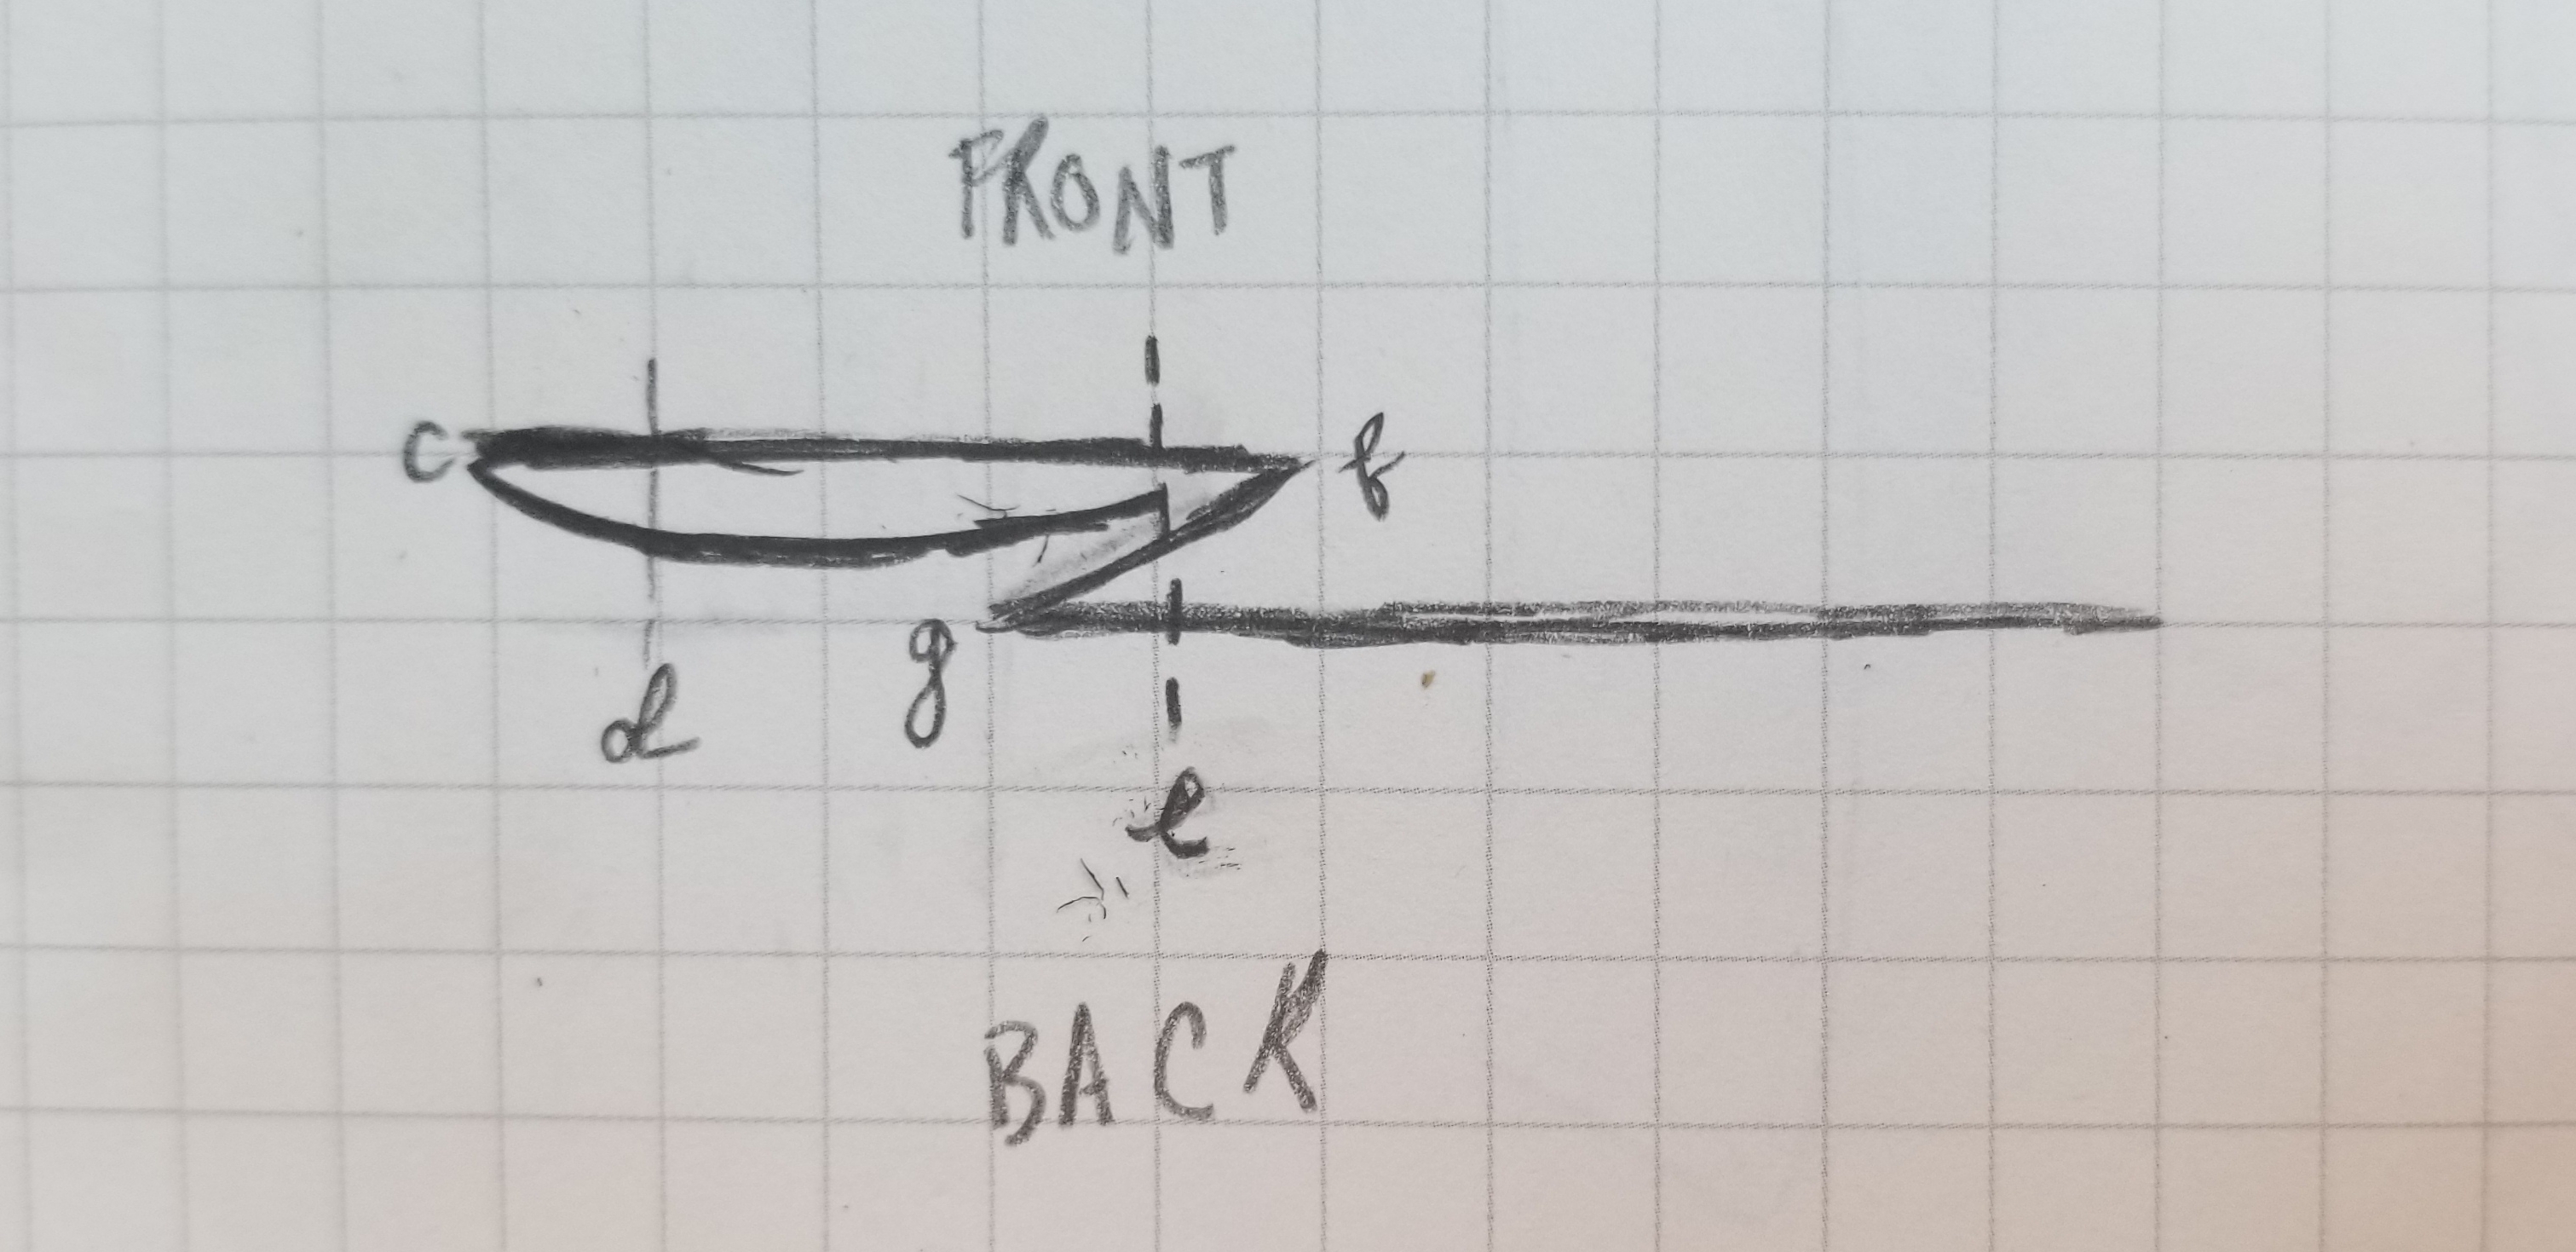 FRONT
c f
g
d
e
BACK